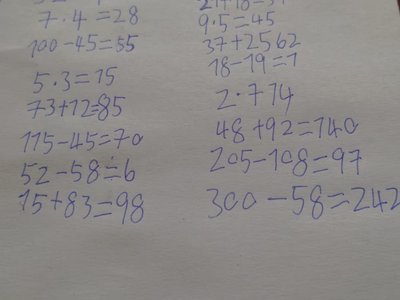 7·4=28
100-45=55
5·3=15
73+12=85
115-45=70
52-58=6
15+83=98
21+18=39
9·5=45
37+2562
18-19=1
2·714
48+92=140
205-108=97
300-58=242